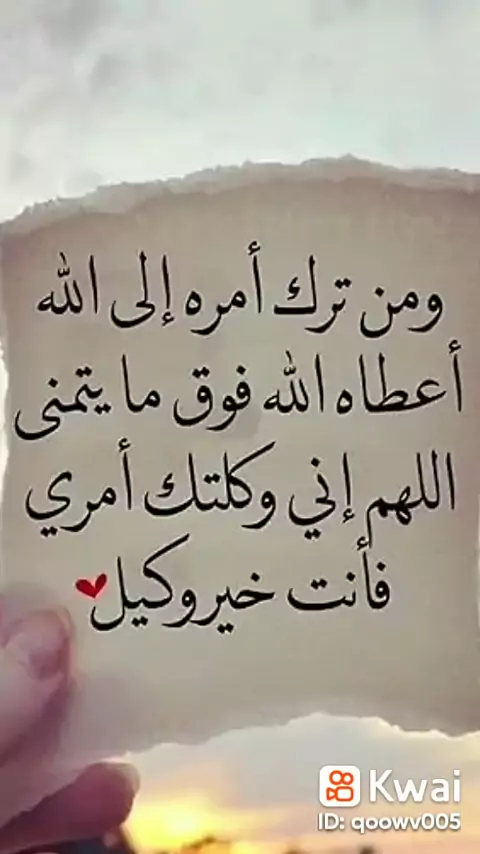 ومن ترك أمره إلى الله
أعطاه الله فوق ما يتمنى
اللهم إني وكلتك أمري
فأنت خير وكيل
Kwai
ID: qoowv005